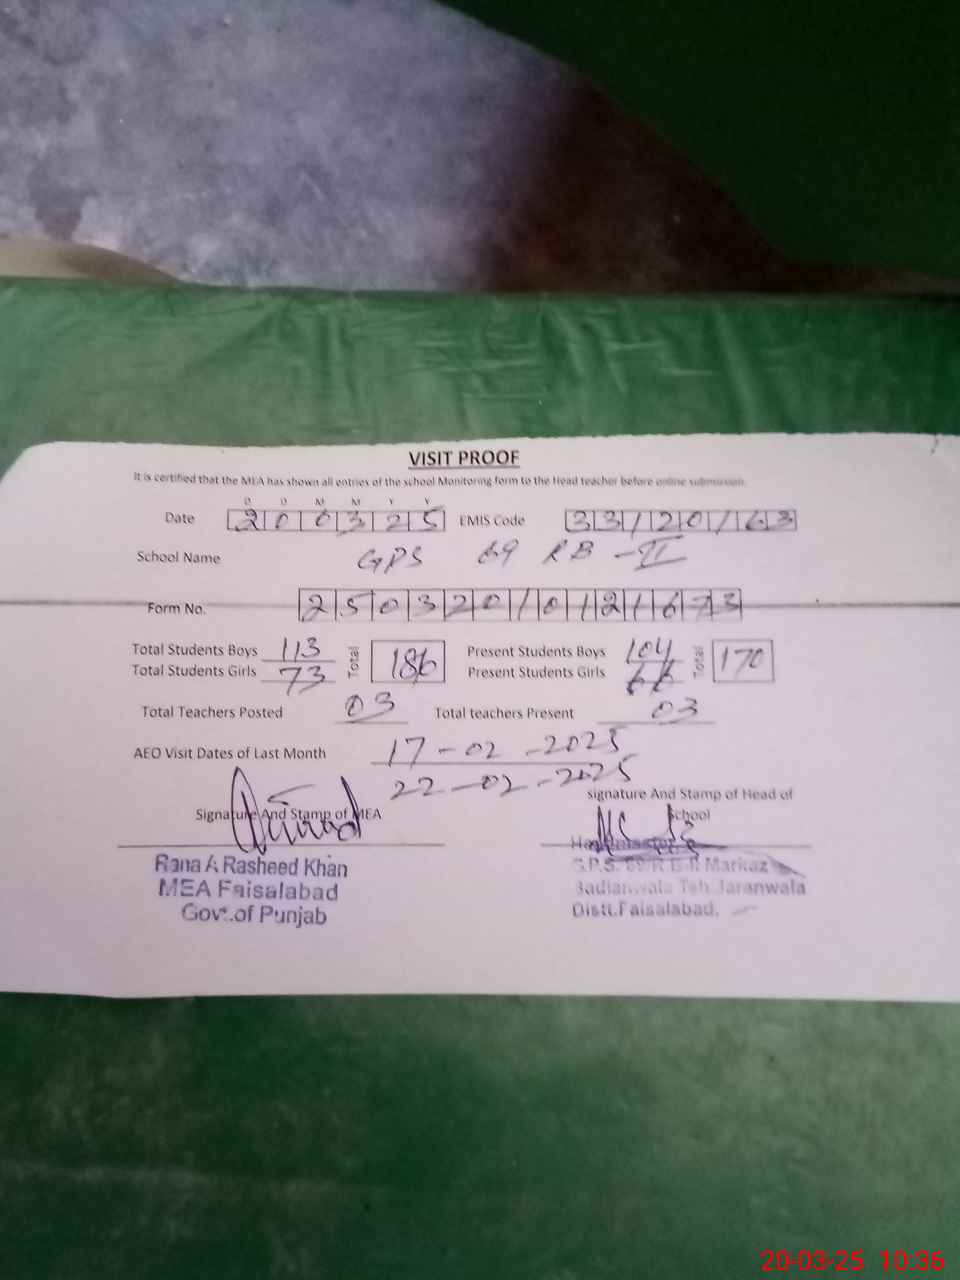 VISIT PROOF
It is certified that the MEA has shown all entries of the school Monitoring form to the Head teacher before online submission.
D D M M Y Y
Date 200325 EMIS Code 33120163
School Name GPS 69 RB - II
Form No. 25032010121673
Total Students Boys 113 Total 186 Present Students Boys 104 Total 170
Total Students Girls 73 Present Students Girls 66
Total Teachers Posted 03 Total teachers Present 03
AEO Visit Dates of Last Month 17-02-2025
22-02-2025
Signature And Stamp of MEA signature And Stamp of Head of School
Rana A Rasheed Khan
MEA Faisalabad
Govt.of Punjab
Headmaster
G.P.S. 69 R.B II Markaz
Teh Jaranwala
Distt.Faisalabad.
20-03-25 10:36